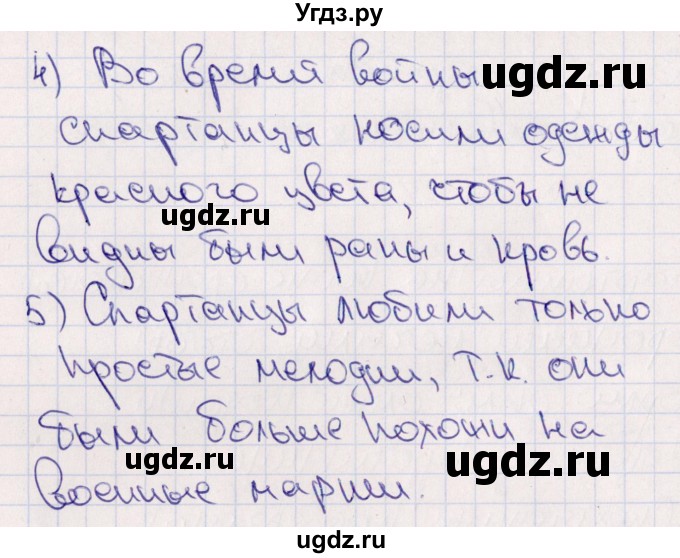 Угдз.ру
4) Во время войны
ugdz.ru
спартанцы носили одежды
красного цвета, чтобы не
ugdz.ru
видны были раны и кровь.
5) Спартанцы любили только
простые мелодии, т.к. они
были больше похожи на
ugdz.ru
ugdz.ru
военные марши.
ugdz.ru